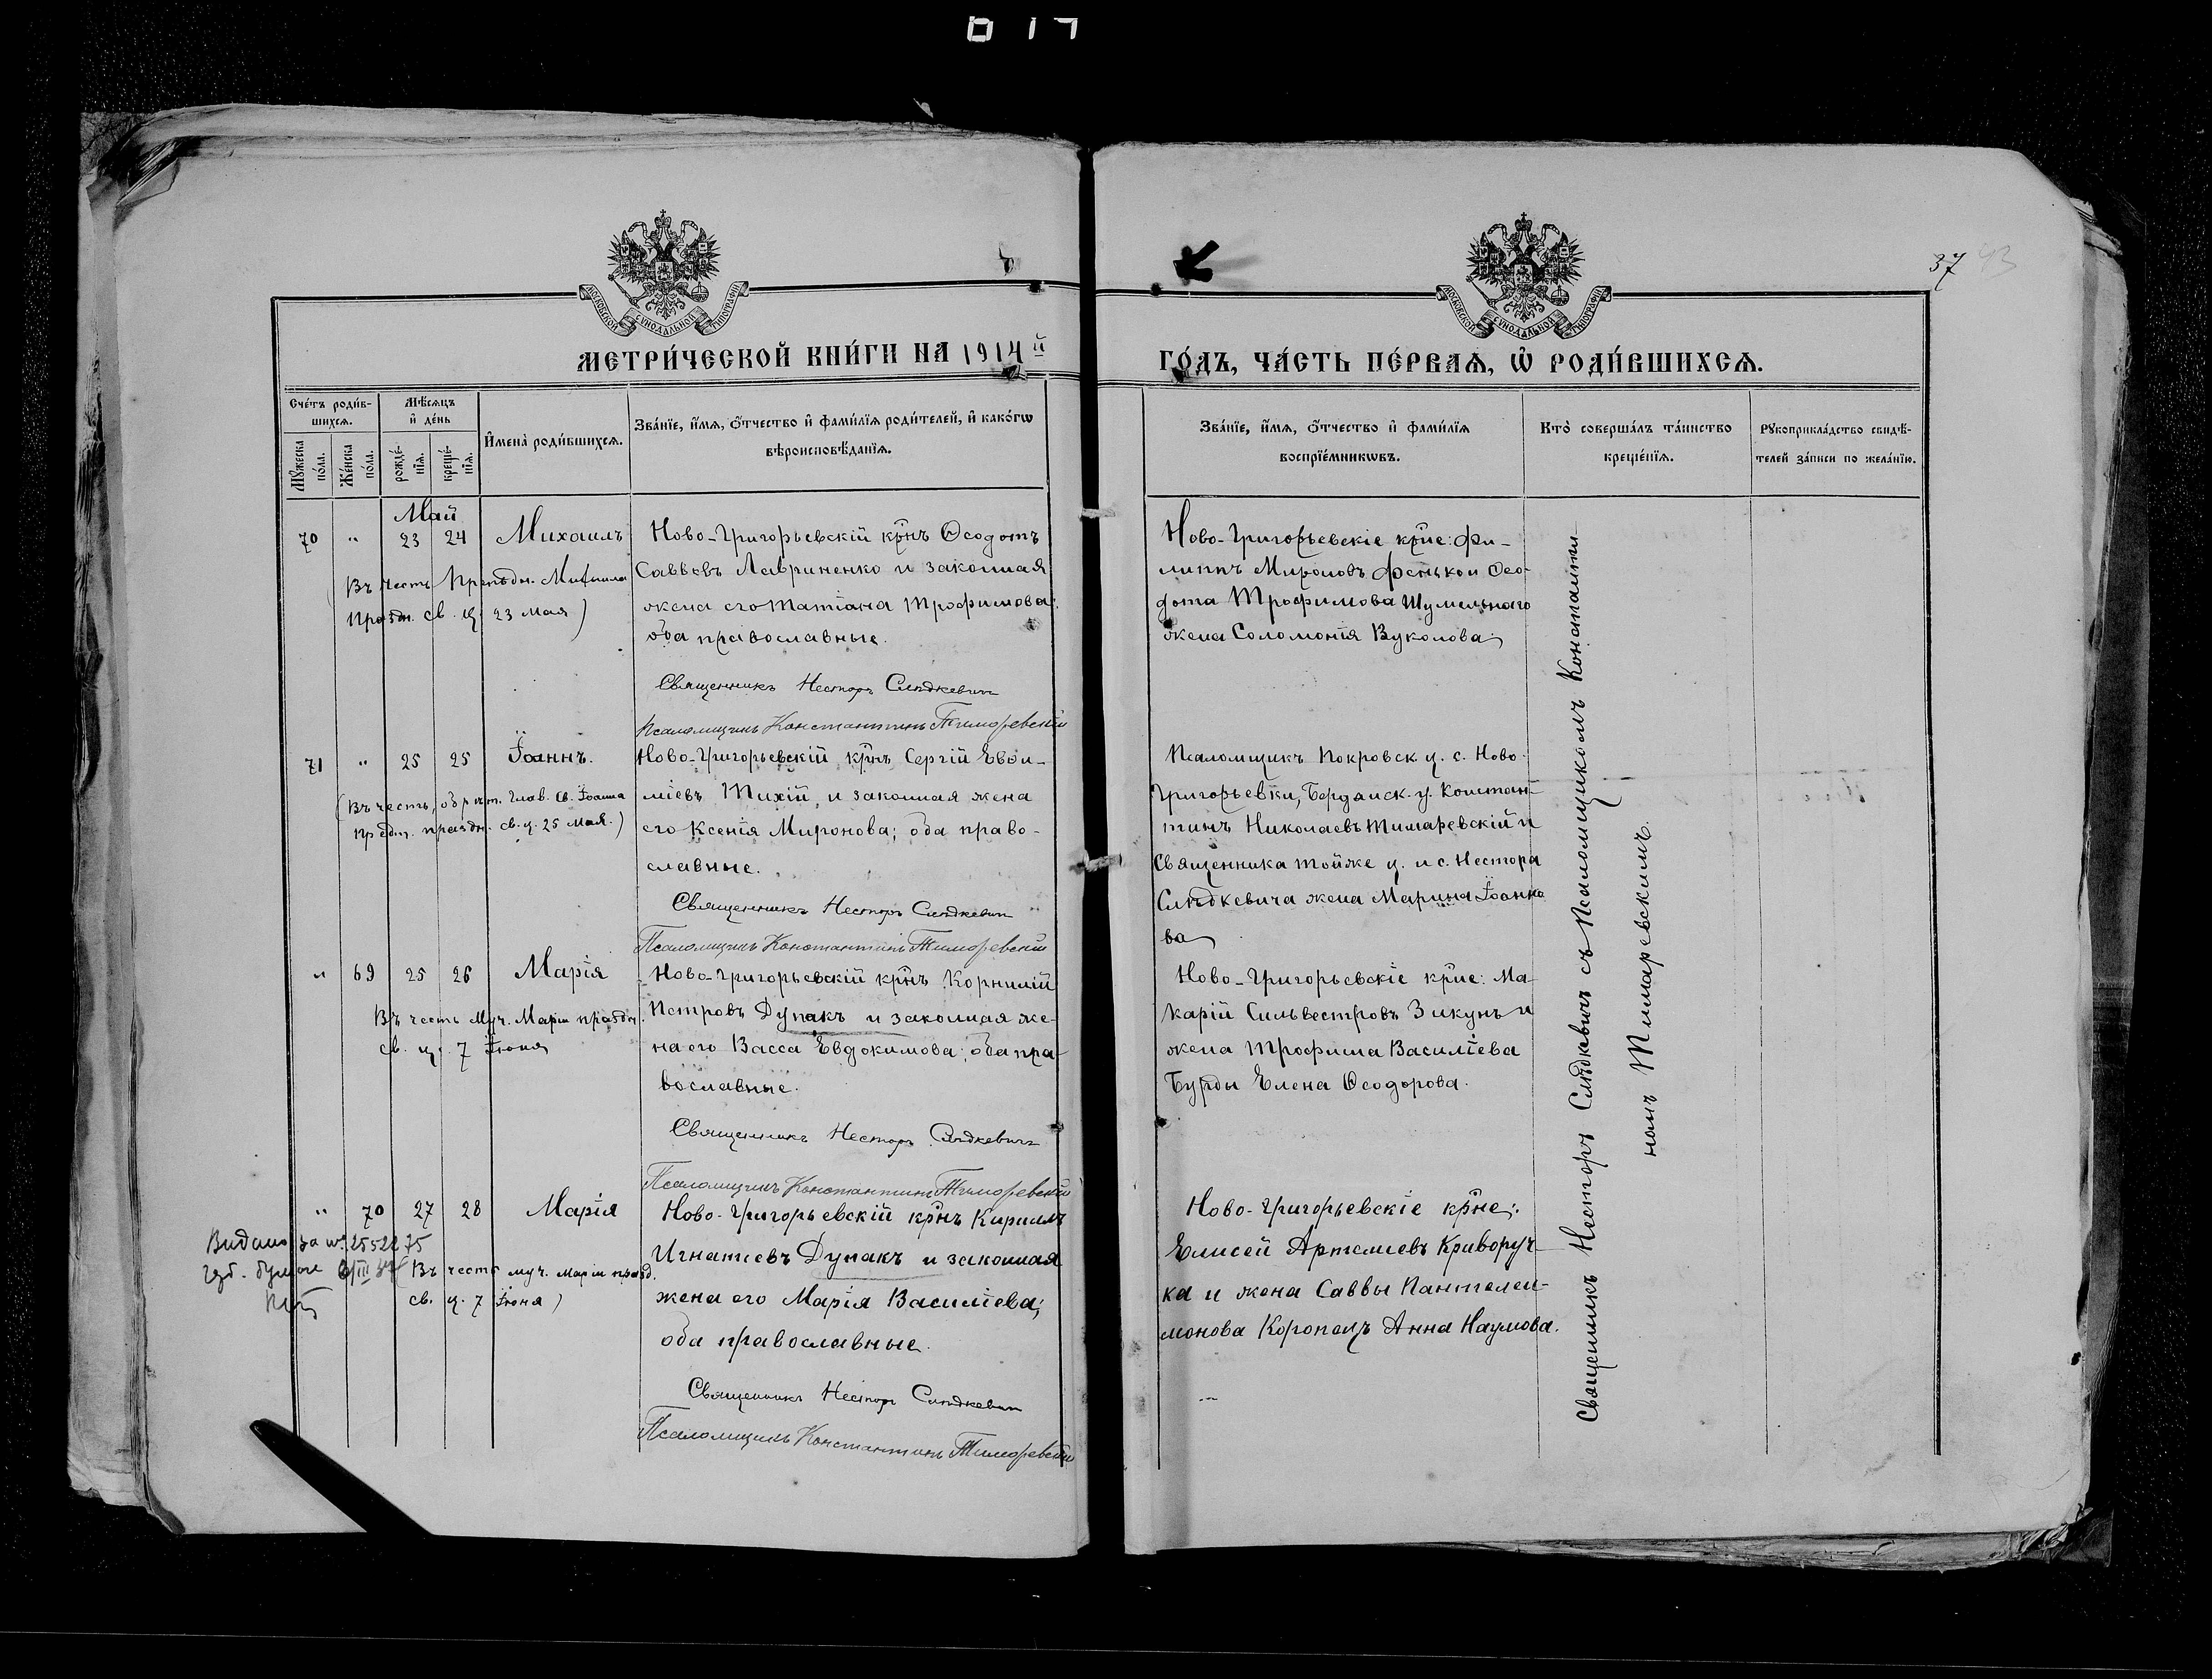 37 43
МОСКОВСКОЙ СѴНОДАЛЬНОЙ ТИПОГРАФІИ
МОСКОВСКОЙ СѴНОДАЛЬНОЙ ТИПОГРАФІИ
МЕТРИ́ЧЕСКОЙ КНИ́ГИ НА 1914й
ГО́ДЪ, ЧА́СТЬ ПЕ́РВАѦ, Ѡ҆ РОДИ́ВШИХСѦ.
Сче́тъ роди́в-
шихсѧ.
Мꙋ́жеска по́ла.
Же́нска по́ла.
Мѣ́сѧцъ
и҆ де́нь
рожде́-
нїѧ.
креще́-
нїѧ.
И҆мена̀ роди́вшихсѧ.
Зва́нїе, и҆́мѧ, ѻ҆́тчество и҆ фами́лїѧ роди́телей, и҆ како́гѡ
вѣроисповѣ́данїѧ.
Зва́нїе, и҆́мѧ, ѻ҆́тчество и҆ фами́лїѧ
воспрїе́мникѡвъ.
Кто̀ соверша́лъ та́инство
креще́нїѧ.
Рꙋкоприкла́дство свидѣ́-
телей за́писи по жела́нїю.
Май
70 " 23 24 Михаилъ
Въ честь Препдн. Михаила
праздн. св. ц. 23 Мая)
Ново-Григорьевскій крнъ Ѳеодотъ
Саввовъ Лавриненко и законная
жена его Татіана Трофимова;
оба православные.
Священникъ Несторъ Слѣдкевичъ
Псаломщикъ Константинъ Тимаревскій
Ново-Григорьевскіе крне: Фи-
липпъ Мироновъ Фенько и Ѳео-
дота Трофимова Шумельнаго
жена Соломонія Вуколова;
71 " 25 25 Іоаннъ.
(Въ честь, обрѣт. глав. св. Іоанна
предт. праздн. св. ц. 25 Мая.)
Ново-Григорьевскій крнъ Сергій Евѳи-
міевъ Тихій, и законная жена
его Ксенія Миронова; оба право-
славные.
Священникъ Несторъ Слѣдкевичъ
Псаломщикъ Константинъ Тимаревскій
Псаломщикъ Покровск ц. с. Ново-
Григорьевки, Бердянск. у. Констан-
тинъ Николаевъ Тимаревскій и
Священника тойже ц. и с. Нестора
Слѣдкевича жена Марина Іоанно
ва
" 69 25 26 Марія
Въ честь Муч. Маріи праздн.
св. ц. 7 Іюня
Ново-Григорьевскій крнъ Корнилій
Петровъ Дупакъ и законная же-
на его Васса Евдокимова; оба пра-
вославные.
Священникъ Несторъ Слѣдкевичъ
Псаломщикъ Константинъ Тимаревскій
Ново-Григорьевскіе крне: Ма-
карій Сильвестровъ Зикунъ и
жена Трофима Василіева
Бурды Елена Ѳеодорова.
" 70 27 28 Марія
Видано за №
Въ честь муч. Маріи празд.
св. ц. 7 Іюня)
Ново-Григорьевскій крнъ Кириллъ
Игнатіевъ Дупакъ и законная
жена его Марія Василіева;
оба православные.
Священникъ Несторъ Слѣдкевичъ
Псаломщикъ Константинъ Тимаревскій
Ново-Григорьевскіе крне:
Елисей Артеміевъ Криворуч-
ка и жена Саввы Пантелеи-
монова Коропецъ Анна Наумова.
Священникъ Несторъ Слѣдкевичъ съ Псаломщикомъ Константи-
номъ Тимаревскимъ.